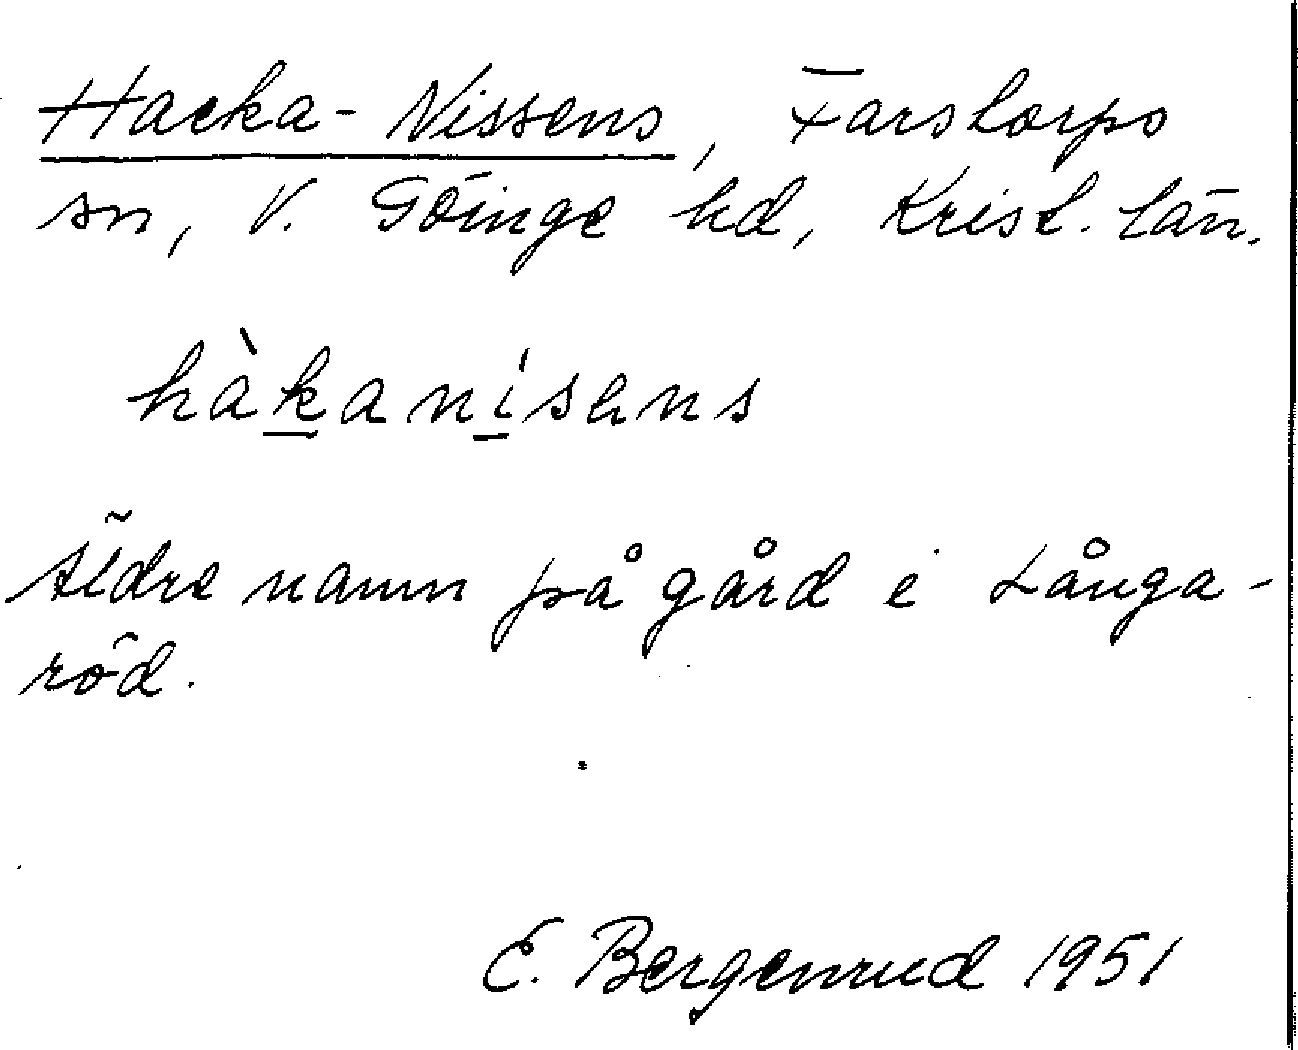 Hacka-Nissens, Farstorps
sn, V. Göinge hd, Krist. län.
hàkanísens
Äldre namn på gård i Långa-
röd.
E. Bergenrud 1951